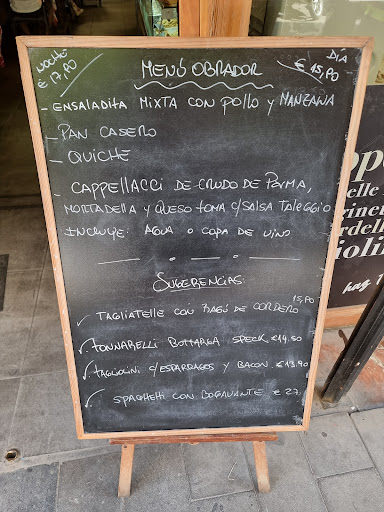 NOCHE
€ 17,90
MENÚ OBRADOR
DÍA
€ 15,90
- ENSALADITA MIXTA CON POLLO Y MANZANA
- PAN CASERO
- QUICHE
- CAPPELLACCI DE CRUDO DE PARMA,
MORTADELLA Y QUESO TOMA C/SALSA TALEGGIO
INCLUYE: AGUA O COPA DE VINO
SUGERENCIAS:
TAGLIATELLE CON RAGÚ DE CORDERO 15,90
TONNARELLI BOTTARGA SPECK €14.50
TAGLIOLINI C/ESPARRAGOS Y BACON €13.90
SPAGHETTI CON BOGAVANTE € 27